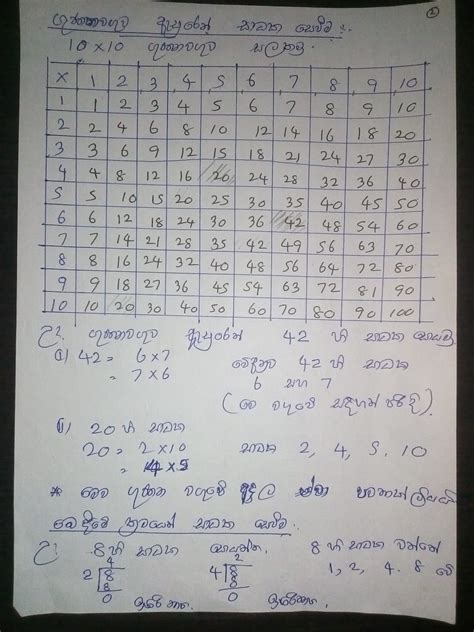 ගුණනවගුව ඇසුරෙන් සාධක සෙවීම :.
2
10 x 10 ගුණනවගුව සලකමු.
x 1 2 3 4 5 6 7 8 9 10
1 1 2 3 4 5 6 7 8 9 10
2 2 4 6 8 10 12 14 16 18 20
3 3 6 9 12 15 18 21 24 27 30
4 4 8 12 16 20 24 28 32 36 40
5 5 10 15 20 25 30 35 40 45 50
6 6 12 18 24 30 36 42 48 54 60
7 7 14 21 28 35 42 49 56 63 70
8 8 16 24 32 40 48 56 64 72 80
9 9 18 27 36 45 54 63 72 81 90
10 10 20 30 40 50 60 70 80 90 100
උදා. ගුණනවගුව ඇසුරෙන් 42 හි සාධක සොයමු
(i) 42 = 6 x 7 මේ අනුව 42 හි සාධක
= 7 x 6 6 සහ 7
(මෙම වගුවේ සඳහන් පරිදි)
(i) 20 හි සාධක
20 = 2 x 10 සාධක 2, 4, 5, 10
= 4 x 5
* මෙම ගුණන වගුවේ
බෙදීමේ ක්‍රමයෙන් සාධක සෙවීම.
උදා: 8 හි සාධක සොයන්න. 8 හි සාධක වන්නේ
4 2 1, 2, 4, 8 වේ
2 8 4 8
8 8
0 ඉතිරි නැත. 0 ඉතිරි නැත.